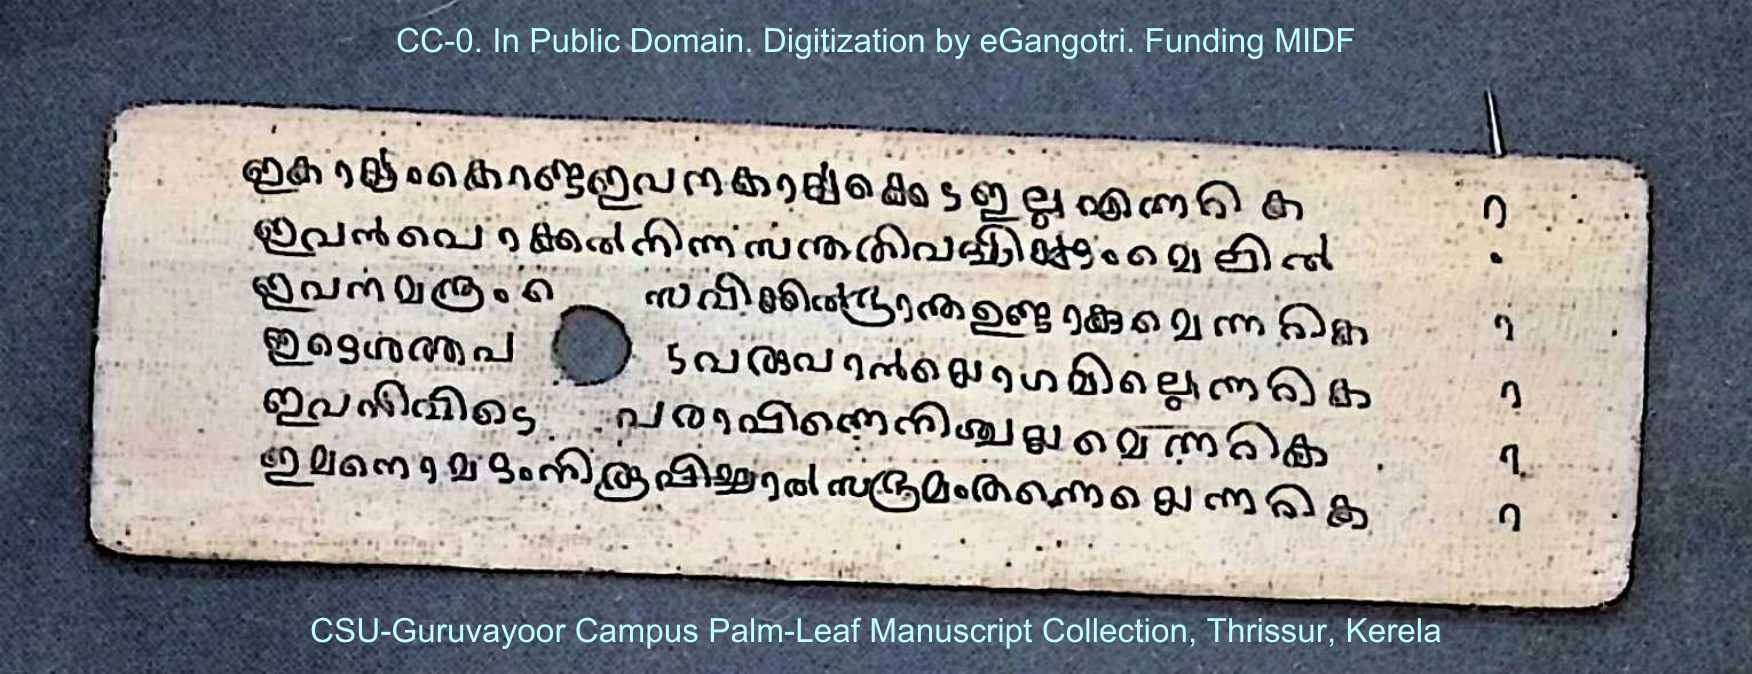 CC-0. In Public Domain. Digitization by eGangotri. Funding MIDF
ഇകാൎയ്യംകൊണ്ടഇവനകാൎയ്യക്കെടഇല്ലഎന്നറിക
ഇവൻപൊറക്കൽനിന്നസന്തതിവൎദ്ധിക്കുംമെലിൽ
ഇവനമന്ത്രംസെവിക്കിൽഭ്രാന്തഉണ്ടാകുമെന്നറിക
ഇദ്ദെശത്തപടവരുവാൻയൊഗമില്ലെന്നറിക
ഇവനിവിടെപരാഷിന്നെനിശ്ചയമെന്നറിക
നിരൂപിച്ചാൽസഭ്രമംതന്നെയെന്നറിക
CSU-Guruvayoor Campus Palm-Leaf Manuscript Collection, Thrissur, Kerela